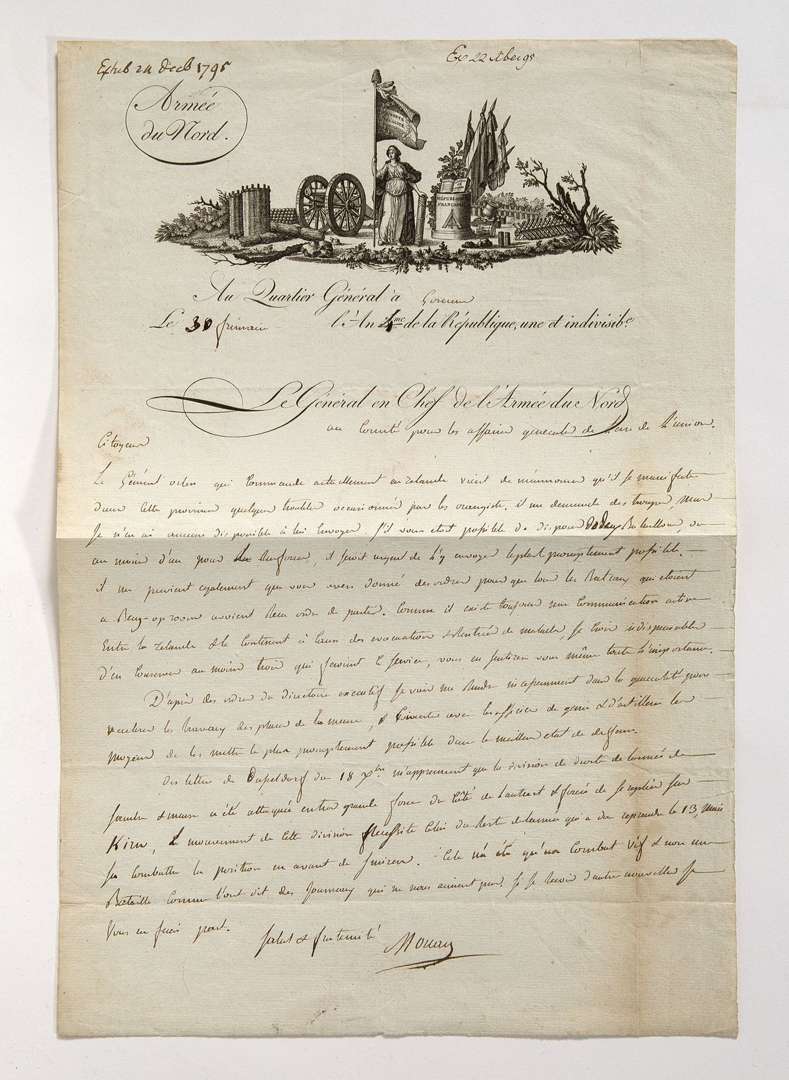 Exhib 24 Decb 1795
Ex 22 xbre 95
Armée
du Nord.
RÉPUBLIQUE
FRANÇAISE
Au Quartier Général à
Le 30 frimaire l'An 4me de la République, une et indivisible
Le Général en Chef de l'Armée du Nord
au Comité pour les affaires generales de de l'union.
Citoyens
Le Général osten qui Commande actuellement en Zelande vient de m'annoncer qu'il se manifeste
dans cette province quelques troubles occasionnés par les orangistes, il me demande des troupes, mais
Je n'en ai aucune disponible à lui Envoyer. S'il vous etait possible de disposer de deux Bataillons, ou
au moins d'un pour le renforcer, il seroit urgent de l'y envoyer le plus promptement possible.
il me previent egalement que vous avez donné des ordres pour que tous les Bateaux qui etoient
a Berg-op-zoom avoient Recu ordre de partir. Comme il existe toujours une Communication active
Entre la Zelande & le Continent à Cause des evacuations & Rentrées de malades, Je Crois indispensable
d'en Conserver au moins trois qui feroient le service, vous en sentirez vous même toute l'importance.
D'après des ordres du directoire executif Je vais me Rendre incessamment dans la pour
les travaux des places de la meuse, & Concerter avec les officiers de genie & d'artillerie les
moyens de les mettre le plus promptement possible dans le meilleur etat de deffense.
des lettres de Dusseldorf du 18 Xbre m'apprennent que la division de droite de l'armée de
Sambre & meuse a été attaquée en très grande force du Côté de Lautreck & forcée de se replier sur
Kirn, le mouvement de Cette division necessite Celui du Reste de l'armée qui a du reprendre le 13, mais
sans Combattre la position en avant de Simeren. Cela n'a été qu'un Combat Vif & non une
Bataille Comme l'ont dit des Journaux qui ne nous aiment pas, Si Je Recois d'autres nouvelles Je
Vous en ferai part.
Salut & fraternité
Moreau